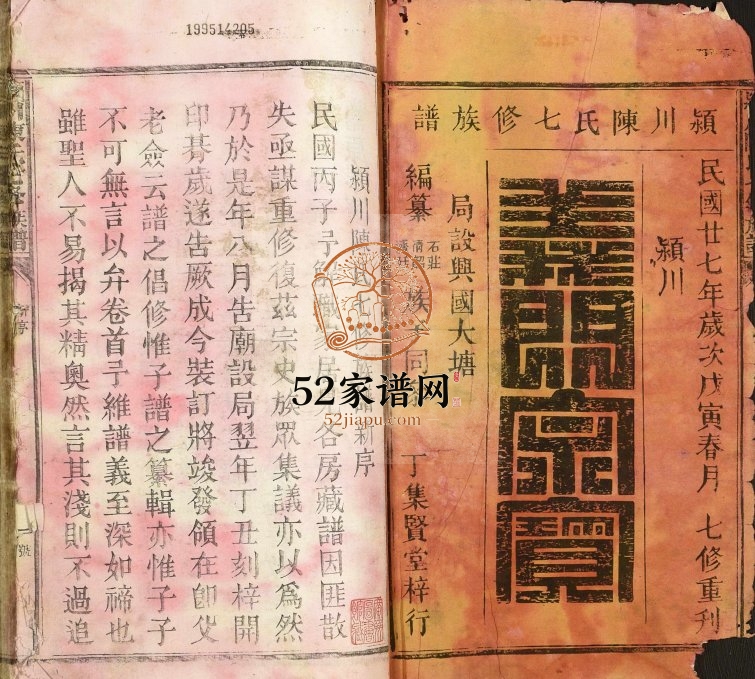 199514205
潁川陳氏七修族譜
民國廿七年歲次戊寅春月 七修重刊
潁川
義門宗寶
局設興國大塘
編纂
族
同
丁集賢堂梓行
七修族譜新序
民國丙子
各房藏譜因匪散
失亟謀重修復茲宗史族眾集議亦以為然
乃於是年八月告廟設局翌年丁丑刻梓開
印朞歲遂告厥成今裝訂將竣發領在卽父
老僉云譜之倡修惟子譜之纂輯亦惟子子
不可無言以弁卷首予維譜義至深如禘也
雖聖人不易揭其精奧然言其淺則不過追
52家谱网
52jiapu.com